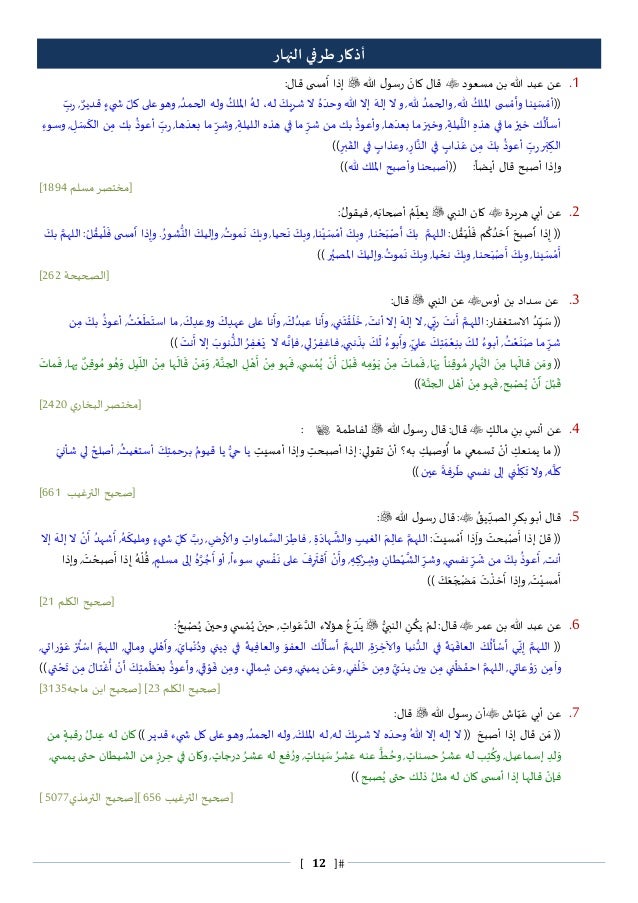 أذكار طرفي النهار
1. عن عبد الله بن مسعود ﵁ قال كانَ رسول الله ﷺ إذا أَمسى قال:
((أَمْسَينا وأَمْسى الملكُ لله, والحمدُ لله, و لا إلهَ إلا الله وحدَهُ لا شريكَ له، لهُ الملكُ وله الحمدُ, وهو على كلّ شيءٍ قديرٌ, ربّ
أسألُك خيرَ ما في هذهِ اللَّيلةِ, وخيرَ ما بعدَها, وأعوذُ بك من شرّ ما في هذه الليلةِ, وشرّ ما بعدَها, ربّ أعوذُ بك مِن الكَسَل, وسوءِ
الكِبَرِ ربّ أعوذُ بكَ مِن عَذابٍ في النَّارِ, وعذابٍ في القَبْرِ))
وإذا أصبح قال أيضاً: ((أصبحنا وأصبح الملك لله))
[مختصر مسلم 1894]
2. عن أبي هريرة ﵁ كان النبي ﷺ يعلِّمُ أصحابَه, فيقولُ:
(( إِذا أَصبحَ أَحَدُكُم فَلْيَقُل: اللهمَّ بكَ أَصْبَحْنا, وبِكَ أمْسَيْنا, وبِكَ نَحيا, وبِكَ نَموتُ, وإليكَ النُّشورُ. وإذا أَمسى فَلْيَقُلْ: اللهمَّ بكَ
أَمْسَينا, وبِكَ أَصْبَحنا, وبكَ نحْيا, وبكَ نَموتُ, وإليكَ المصيرُ ))
[الصحيحة 262]
3. عن سداد بن أوس﵁ عن النبي ﷺ قال:
(( سَيّدُ الاستغفار: اللهمَّ أَنتَ ربّي, لا إلهَ إلا أنتَ, خَلَقْتَني, وأنا عبدُكَ, وأَنا على عهدِكَ ووعدِكَ, ما استَطَعْتُ, أعوذُ بكَ مِن
شرّ ما صَنَعْتُ, أبوءُ لكَ بِنِعْمَتِكَ عليّ, وأَبوءُ لَكَ بذَنبي, فاغفِرْلي, فإنَّه لا يَغْفِرُ الذُّنوبَ إلا أنْتَ ))
(( ومَن قالَها مِنَ النَّهارِ مُوقِناً بها, فَماتَ مِنْ يَوْمِه قَبْلَ أَنْ يُمْسي, فهو مِنْ أَهْلِ الجنَّة, وَمَنْ قالَها مِن الليلِ وهُوَ مُوقِنٌ بها, فَماتَ
قَبْلَ أَنْ يُصْبِح, فهو مِنْ أهْلِ الجنَّة))
[مختصر البخاري 2420]
4. عن أنسِ بنِ مالكٍ ﵁ قال: قال رسول الله ﷺ لفاطمة :
(( ما يمنعكِ أنْ تسمعي ما أُوصيكِ به؟ أنْ تقولي: إذا أصبحتِ وإذا أمسيتِ يا حيُّ يا قيومُ برحمتِكَ أستغيثُ, أصلحْ لي شأنيَ
كلَّه, ولا تَكِلْني إلى نفسي طَرفةَ عين ))
[صحيح الترغيب 661]
5. قال أبو بكرٍ الصديّقُ ﵁: قال رسول الله ﷺ:
(( قلْ إذا أَصْبَحتَ وإذا أمْسَيتَ: اللهمَّ عالِمَ الغيبِ والشَّهادَةِ , فاطِرَ السَّماواتِ والأرْضِ, ربَّ كلّ شيءٍ ومليكَهُ, أَشهدُ أنْ لا إلهَ إلا
أنت, أعوذُ بكَ من شَرّ نفسي, وشرّ الشَّيْطانِ وشِرْكِهِ, وأَنْ أقتَرِفَ على نفْسي سوءاً, أو أَجُرَّهُ إلى مسلمٍ, قُلْهُ إذا أَصبحْتَ, وإذا
أَمسيْتَ, وإذا أَخَذْتَ مَضْجَعَكَ ))
[صحيح الكلم 21]
6. عن عبد الله بن عمر ﵁ قال: لمْ يكُنِ النَّبيُّ ﷺ يَدَعُ هؤلاء الدَّعَواتِ, حينَ يُمْسي وحينَ يُصْبحُ:
(( اللهمَّ إنّي أسْألُكَ العافيَةَ في الدُّنيا والآخِرَةِ, اللهمَّ أسألُك العفوَ والعافيةَ في دِيني ودُنْيايَ, وأهْلي ومالي, اللهمَّ اسْتُرْ عَوْراتي,
وآمِن رَوْعاتي, اللهمَّ احفَظْني مِن بينِ يدَيَّ ومِن خَلْفي, وعَن يميني, وعن شِمالي, ومِن فَوْقي, وأعوذُ بعَظَمَتِكَ أَنْ أُغْتَالَ مِن تَحْتي))
[صحيح الكلم 23] [صحيح ابن ماجه3135]
7. عن أبي عَيّاش ﵁أن رسول الله ﷺ قال:
(( مَن قال إذا أصبحَ (( لا إله إلا اللهُ وحدَه لا شريكَ له, له الملكُ, وله الحمدُ, وهو على كل شيء قدير )) كان له عِدلُ رقبةٍ من
ولدِ إسماعيل, وكُتِب له عشرُ حسناتٍ, وحُطَّ عنه عشرُ سَيئاتٍ, ورُفع له عشرُ درجاتٍ, وكان في حِرزٍ من الشيطان حتى يمسي,
فإنْ قالها إذا أمسى كان له مثلُ ذلك حتى يُصبح ))
[صحيح الترغيب 656 ][صحيح الترمذي5077 ]
[ 12 ]#